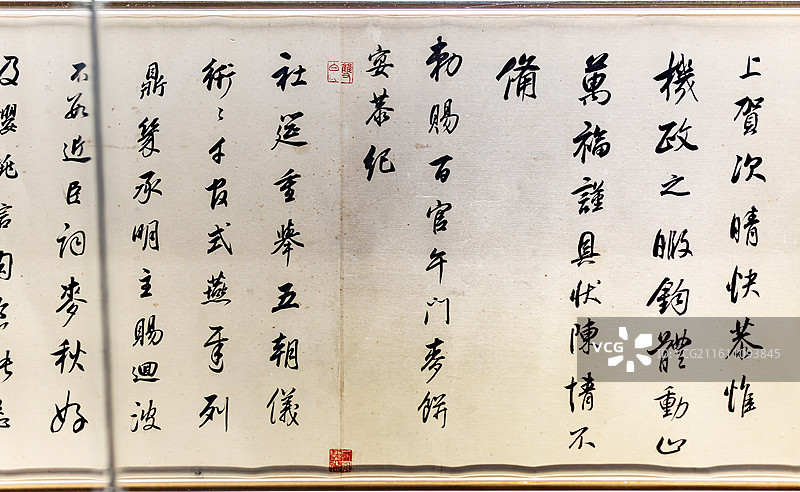 上賀次晴快恭惟
機政之暇鈞體動止
萬福謹具狀陳情不
備
勅賜百官午門麥餅
宴恭紀
社筵重舉五朝儀
式燕年列
鼎養承明主賜迴波
不數近臣詞麥秋好
VCG
VCG211611093845